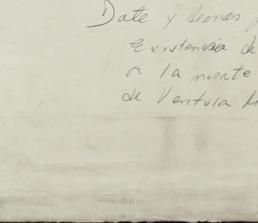 Date y demas
existencia de
a la muerte
de Ventura